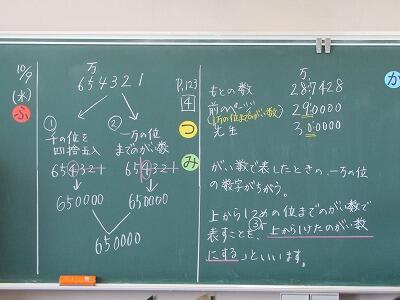 10/9
(水)
ふ
万
654321
P.123
4
① 千の位を四捨五入
② 一万の位までのがい数
654321
654321
650000
650000
650000
つ
み
か
もとの数 287428
前のページ 290000
(一万の位までのがい数)
先生 300000
がい数で表したときの、一万の位
の数字がちがう。
上から1つめの位までのがい数で
表すことを、③上から1けたのがい数
にするといいます。